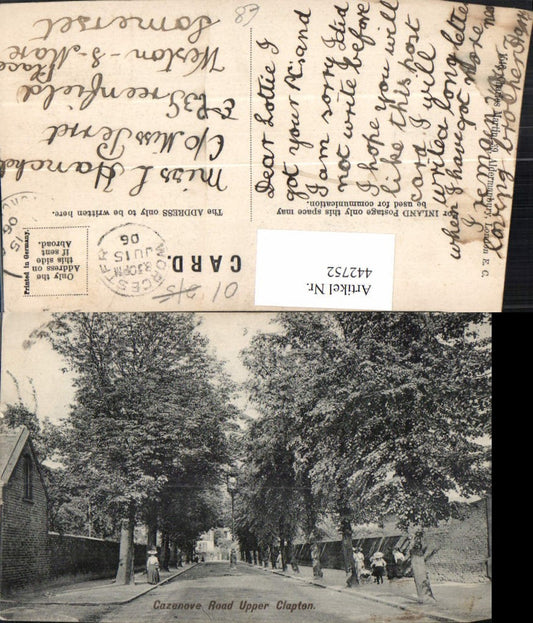 CARD.
For INLAND Postage only this space may
be used for communication.
The ADDRESS only to be written here.
Dear Lottie I
got your P.C. and
I am sorry I did
not write before
I hope you will
like this post
card. I will
write a long letter
when I have got more
I remain
loving brother
Miss L
C/o Miss
Greenfield
Place
Weston-S-Mare
Somerset
WORCESTER
8.30PM
JU 15
06
Only the
Address on
this side
if sent
Abroad.
Printed in Germany.
Artikel Nr.
442752
Aldermanbury, London E. C.
Cazenove Road Upper Clapton.